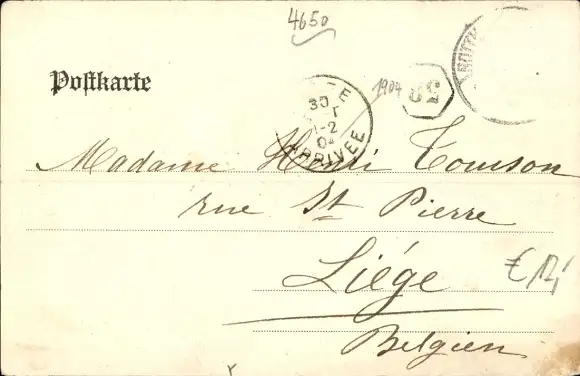 4650
Postkarte
1904
30
1-2
04
ARRIVÉE
Madame Henri Tomson
rue St Pierre
Liége
Belgien